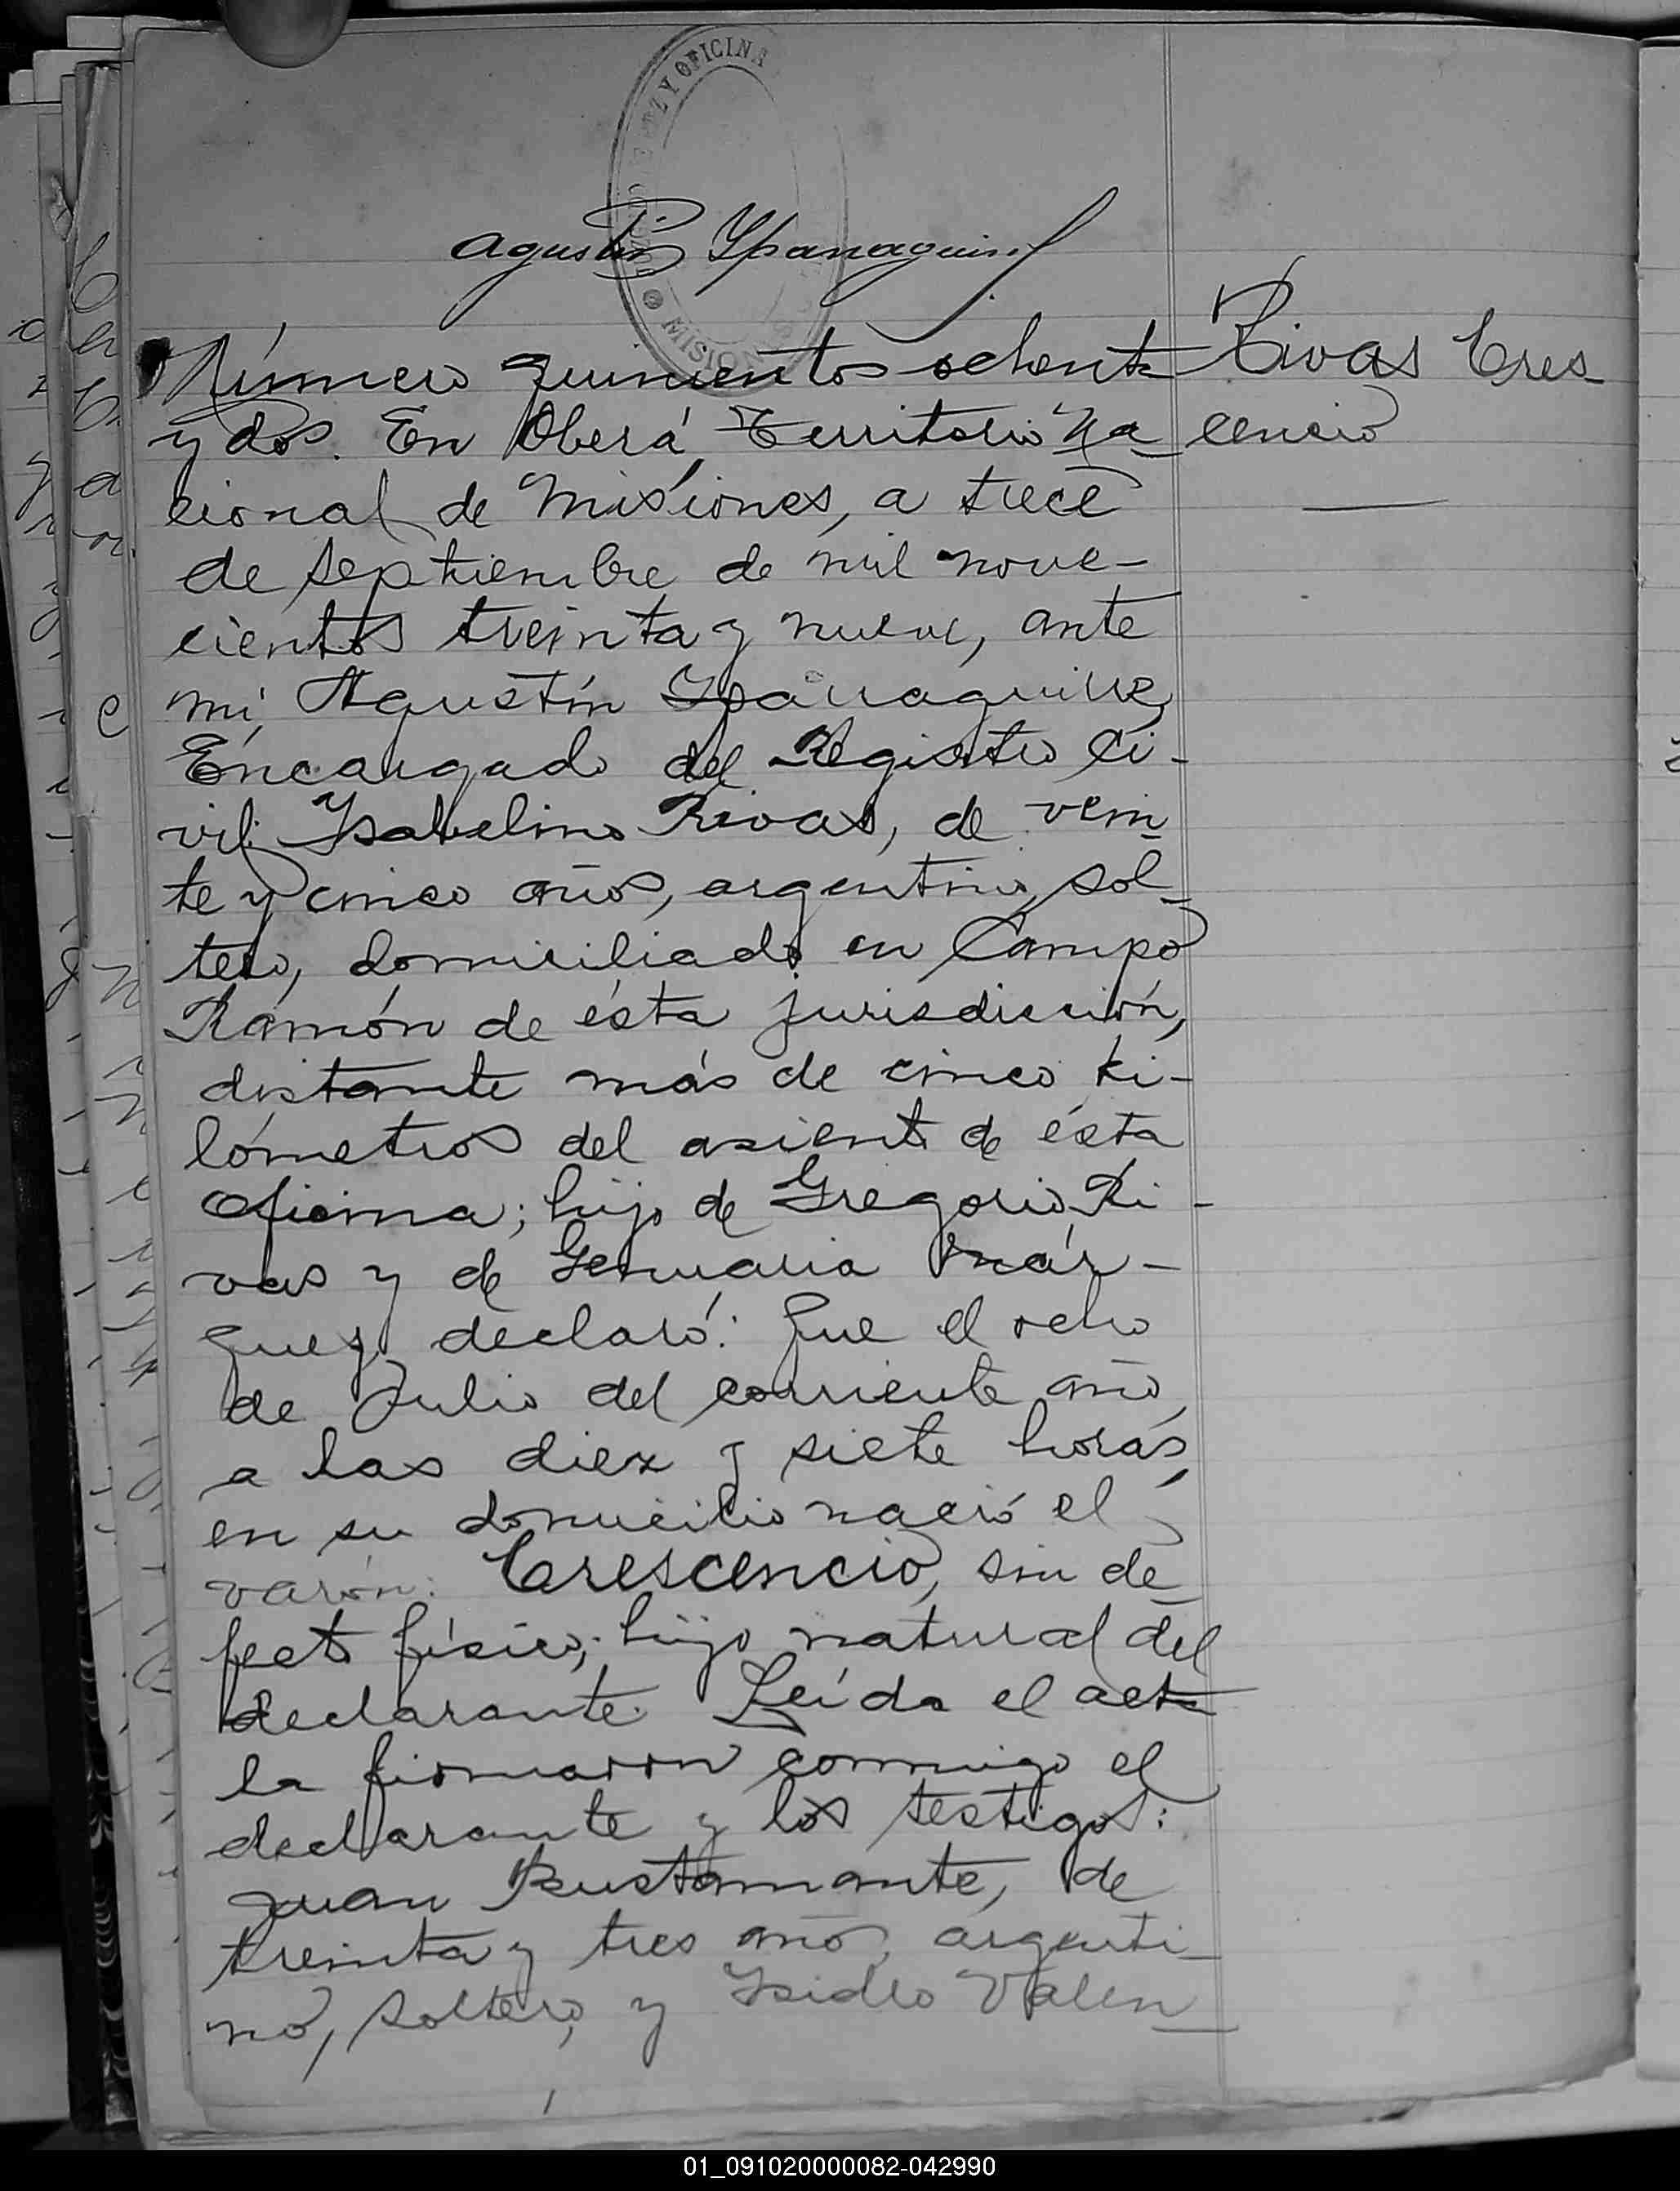 Y OFICINA
MISIONES
Agustín Yparraguirre
Número quinientos ochenta
y dos. En Oberá, Territorio Na_
cional de Misiones, a trece
de septiembre de mil nove-
cientos treinta y nueve, ante
mí, Agustín Yparraguirre,
Encargado del Registro Ci-
vil: Ysabelino Rivas, de vein_
te y cinco años, argentino, sol_
tero, domiciliado en Campo
Ramón de ésta jurisdicción,
distante más de cinco ki-
lómetros del asiento de ésta
Oficina; hijo de Gregorio Ri-
vas y de Genuaria Már-
quez, declaró: Que el ocho
de Julio del corriente año,
a las diez y siete horas,
en su domicilio nació el
varón: Crescencio, sin de_
fecto físico; hijo natural del
declarante. Leída el acta
la firmaron conmigo el
declarante y los testigos:
Juan Bustamante, de
treinta y tres años, argenti_
no, soltero, y Ysidro Valen_
Rivas Cres_
cencio
01_091020000082-042990